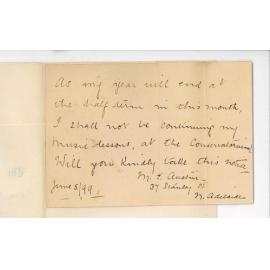 As my year will end at
the half term in this month,
I shall not be continuing my
music lessons, at the Conservatorium
Will you kindly take this notice
June 5/99. M. L. Austin
37 Stanley St
N. Adelaide